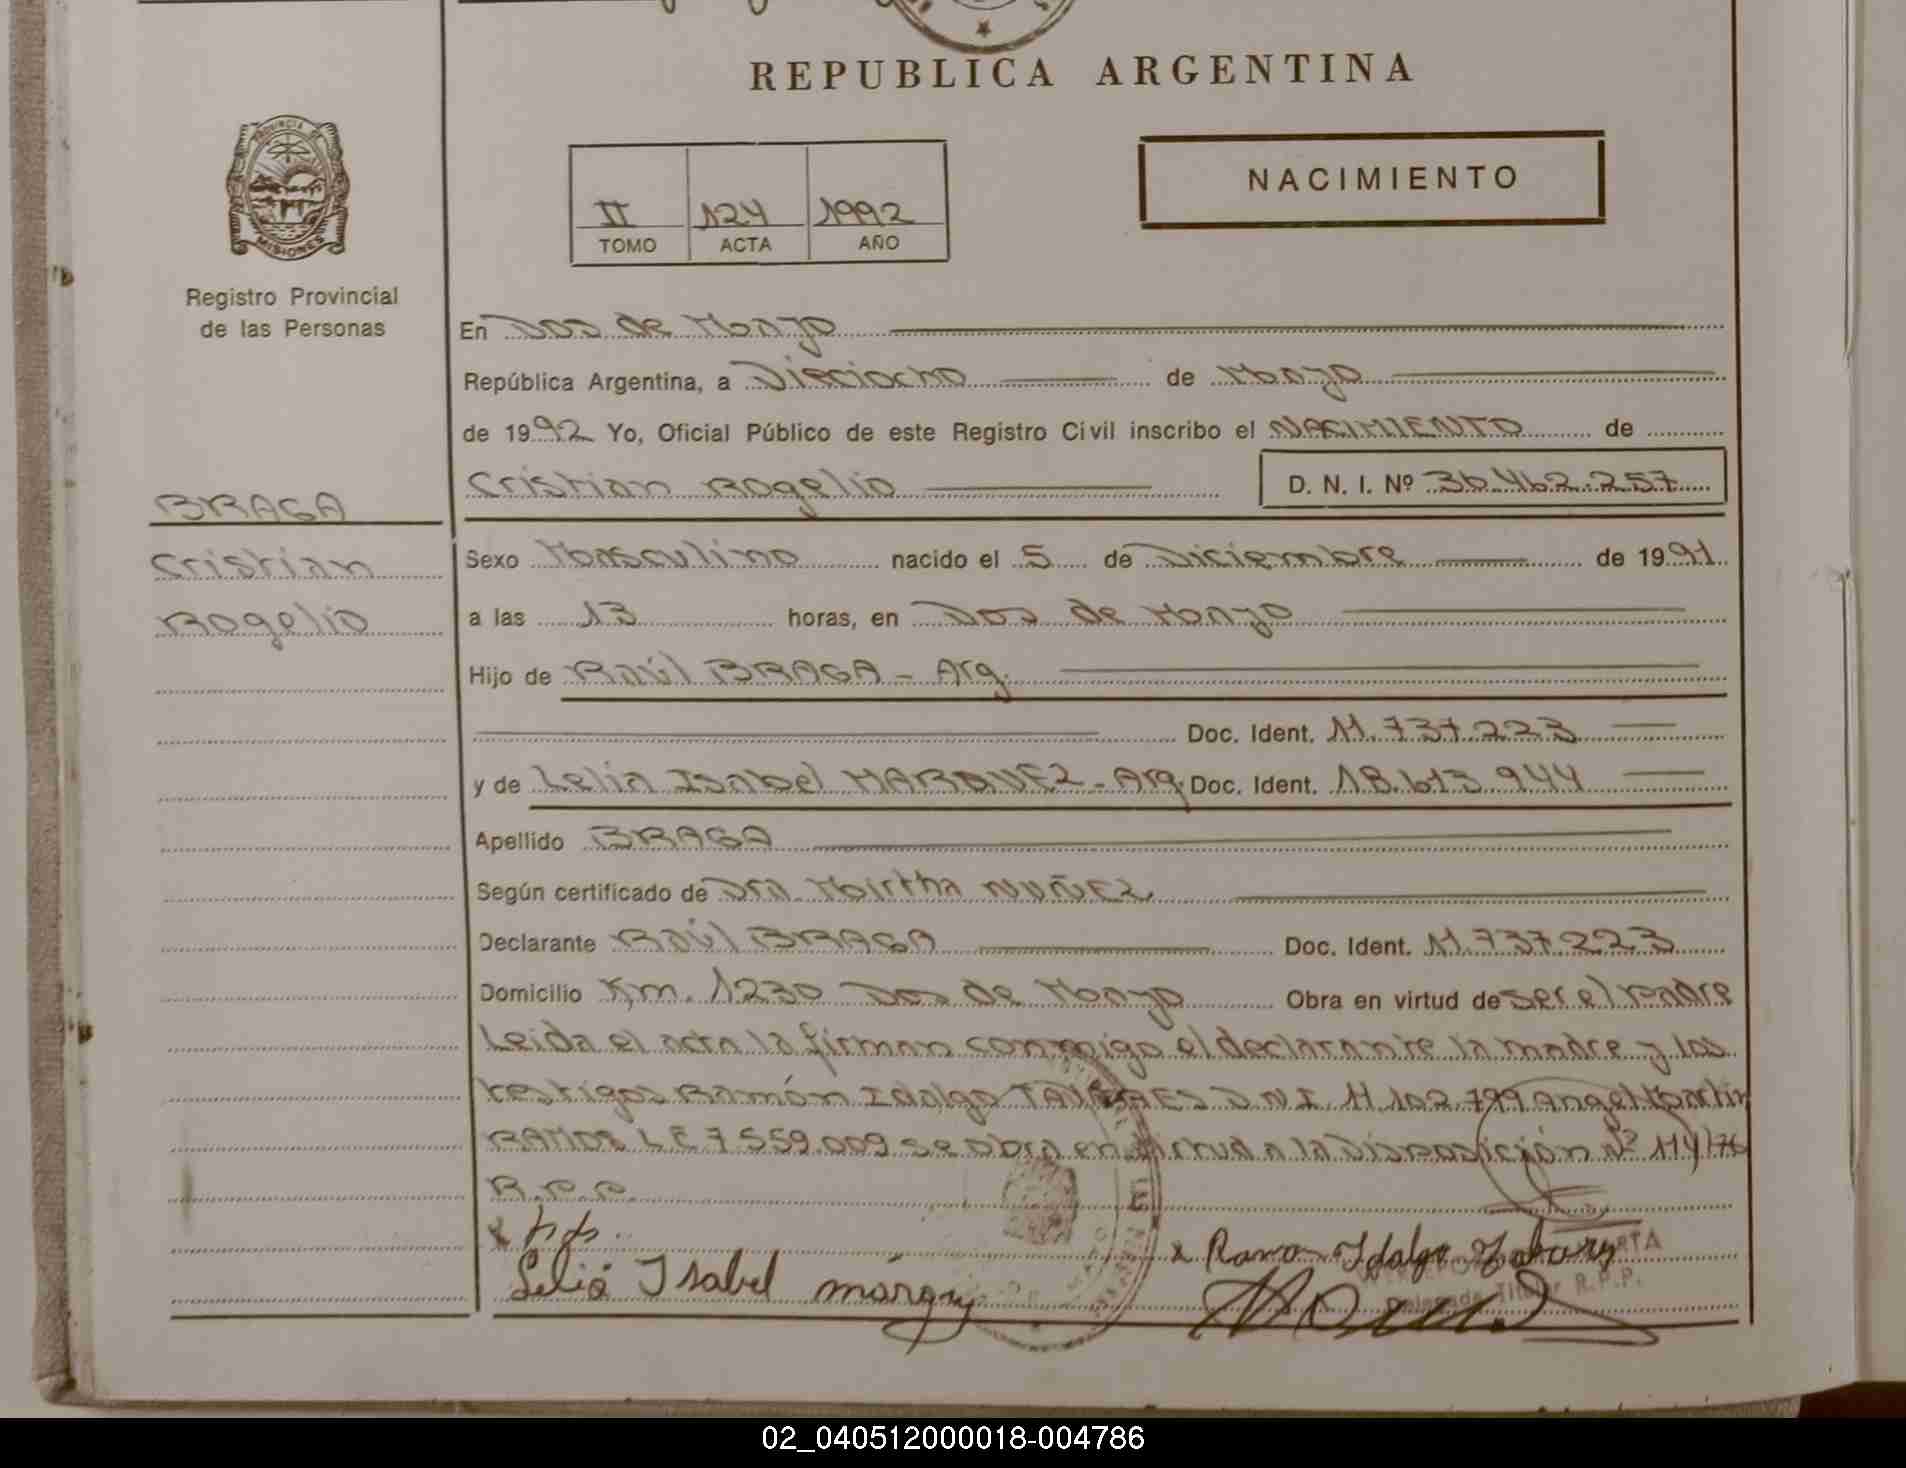 REPUBLICA ARGENTINA
PROVINCIA DE
MISIONES
Registro Provincial
de las Personas
NACIMIENTO
II 124 1992
TOMO ACTA AÑO
En Dos de Mayo
República Argentina, a Dieciocho de Mayo
de 1992 Yo, Oficial Público de este Registro Civil inscribo el NACIMIENTO de
Cristian Rogelio D. N. I. Nº 36.462.257
BRAGA
Cristian
Rogelio
Sexo Masculino nacido el 5 de Diciembre de 1991
a las 13 horas, en Dos de Mayo
Hijo de Raúl BRAGA - Arg.
Doc. Ident. 11.737.223
y de Lelia Isabel MARQUEZ - Arg. Doc. Ident. 18.613.944
Apellido BRAGA
Según certificado de Dra. Mirtha NUÑEZ
Declarante Raúl BRAGA Doc. Ident. 11.737.223
Domicilio Km. 1230 Dos de Mayo Obra en virtud de ser el padre
Leida el acta la firman conmigo el declarante la madre y los
testigos Ramón Idalgo TAVARES D.N.I. 11.102.799 Angel Martin
RAMOS L.E 7.559.009 se obra en virtud a la Disposición Nº 114/76
R.P.P.
Lelia Isabel márquez
x Ramon Idalgo
Titular R.P.P.
02_040512000018-004786